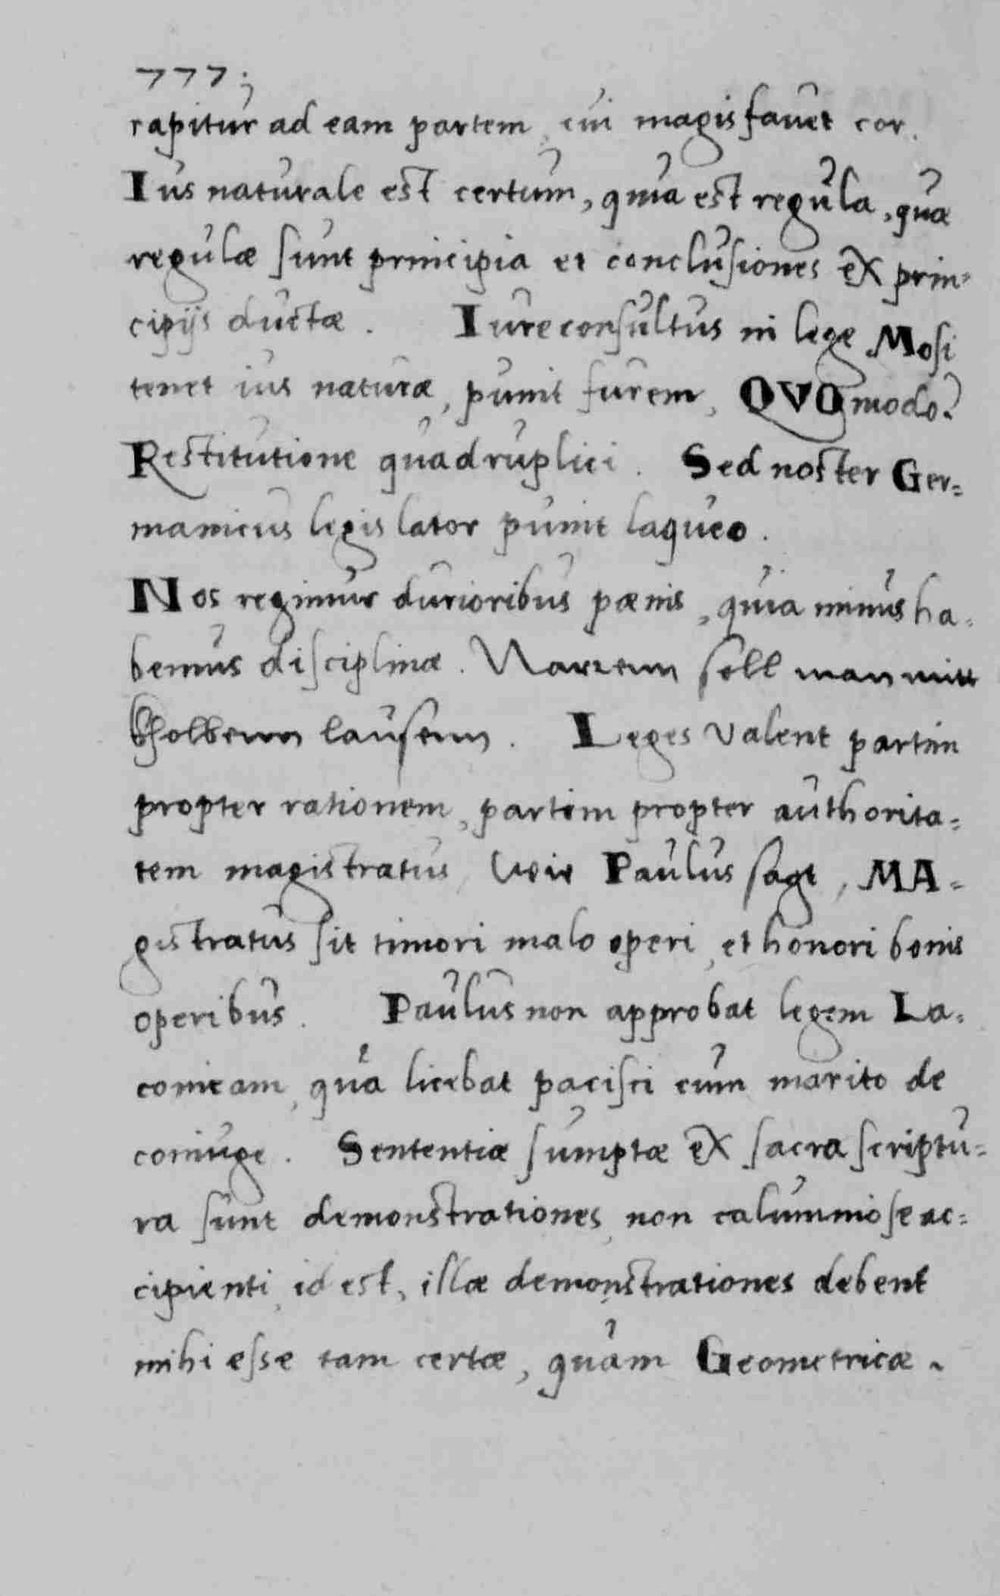 777;
rapitur ad eam partem, cui magis favet cor.
Ius naturale est certum, quia est regula, quæ
regulæ sunt principia et conclusiones ex prin=
cipijs ductæ. Iureconsultus in lege Mosi
tenet ius naturæ, punit furem, QVOmodo?
Restitutione quadruplici. Sed noster Ger=
manicus legislator punit laqueo.
Nos regimur durioribus pœnis, quia minus ha=
bemus disciplinæ. Narren soll man mitt
kholbenn lausenn. Leges valent partim
propter rationem, partim propter authorita=
tem magistratus, wie Paulus sagt, MA=
gistratus sit timori malo operi, et honori bonis
operibus. Paulus non approbat legem La=
conicam, qua licebat pacisci cum marito de
coniuge. Sententiæ sumptæ ex sacra scriptu=
ra sunt demonstrationes non calumniose ac=
cipienti, id est, illæ demonstrationes debent
mihi esse tam certæ, quam Geometricæ.